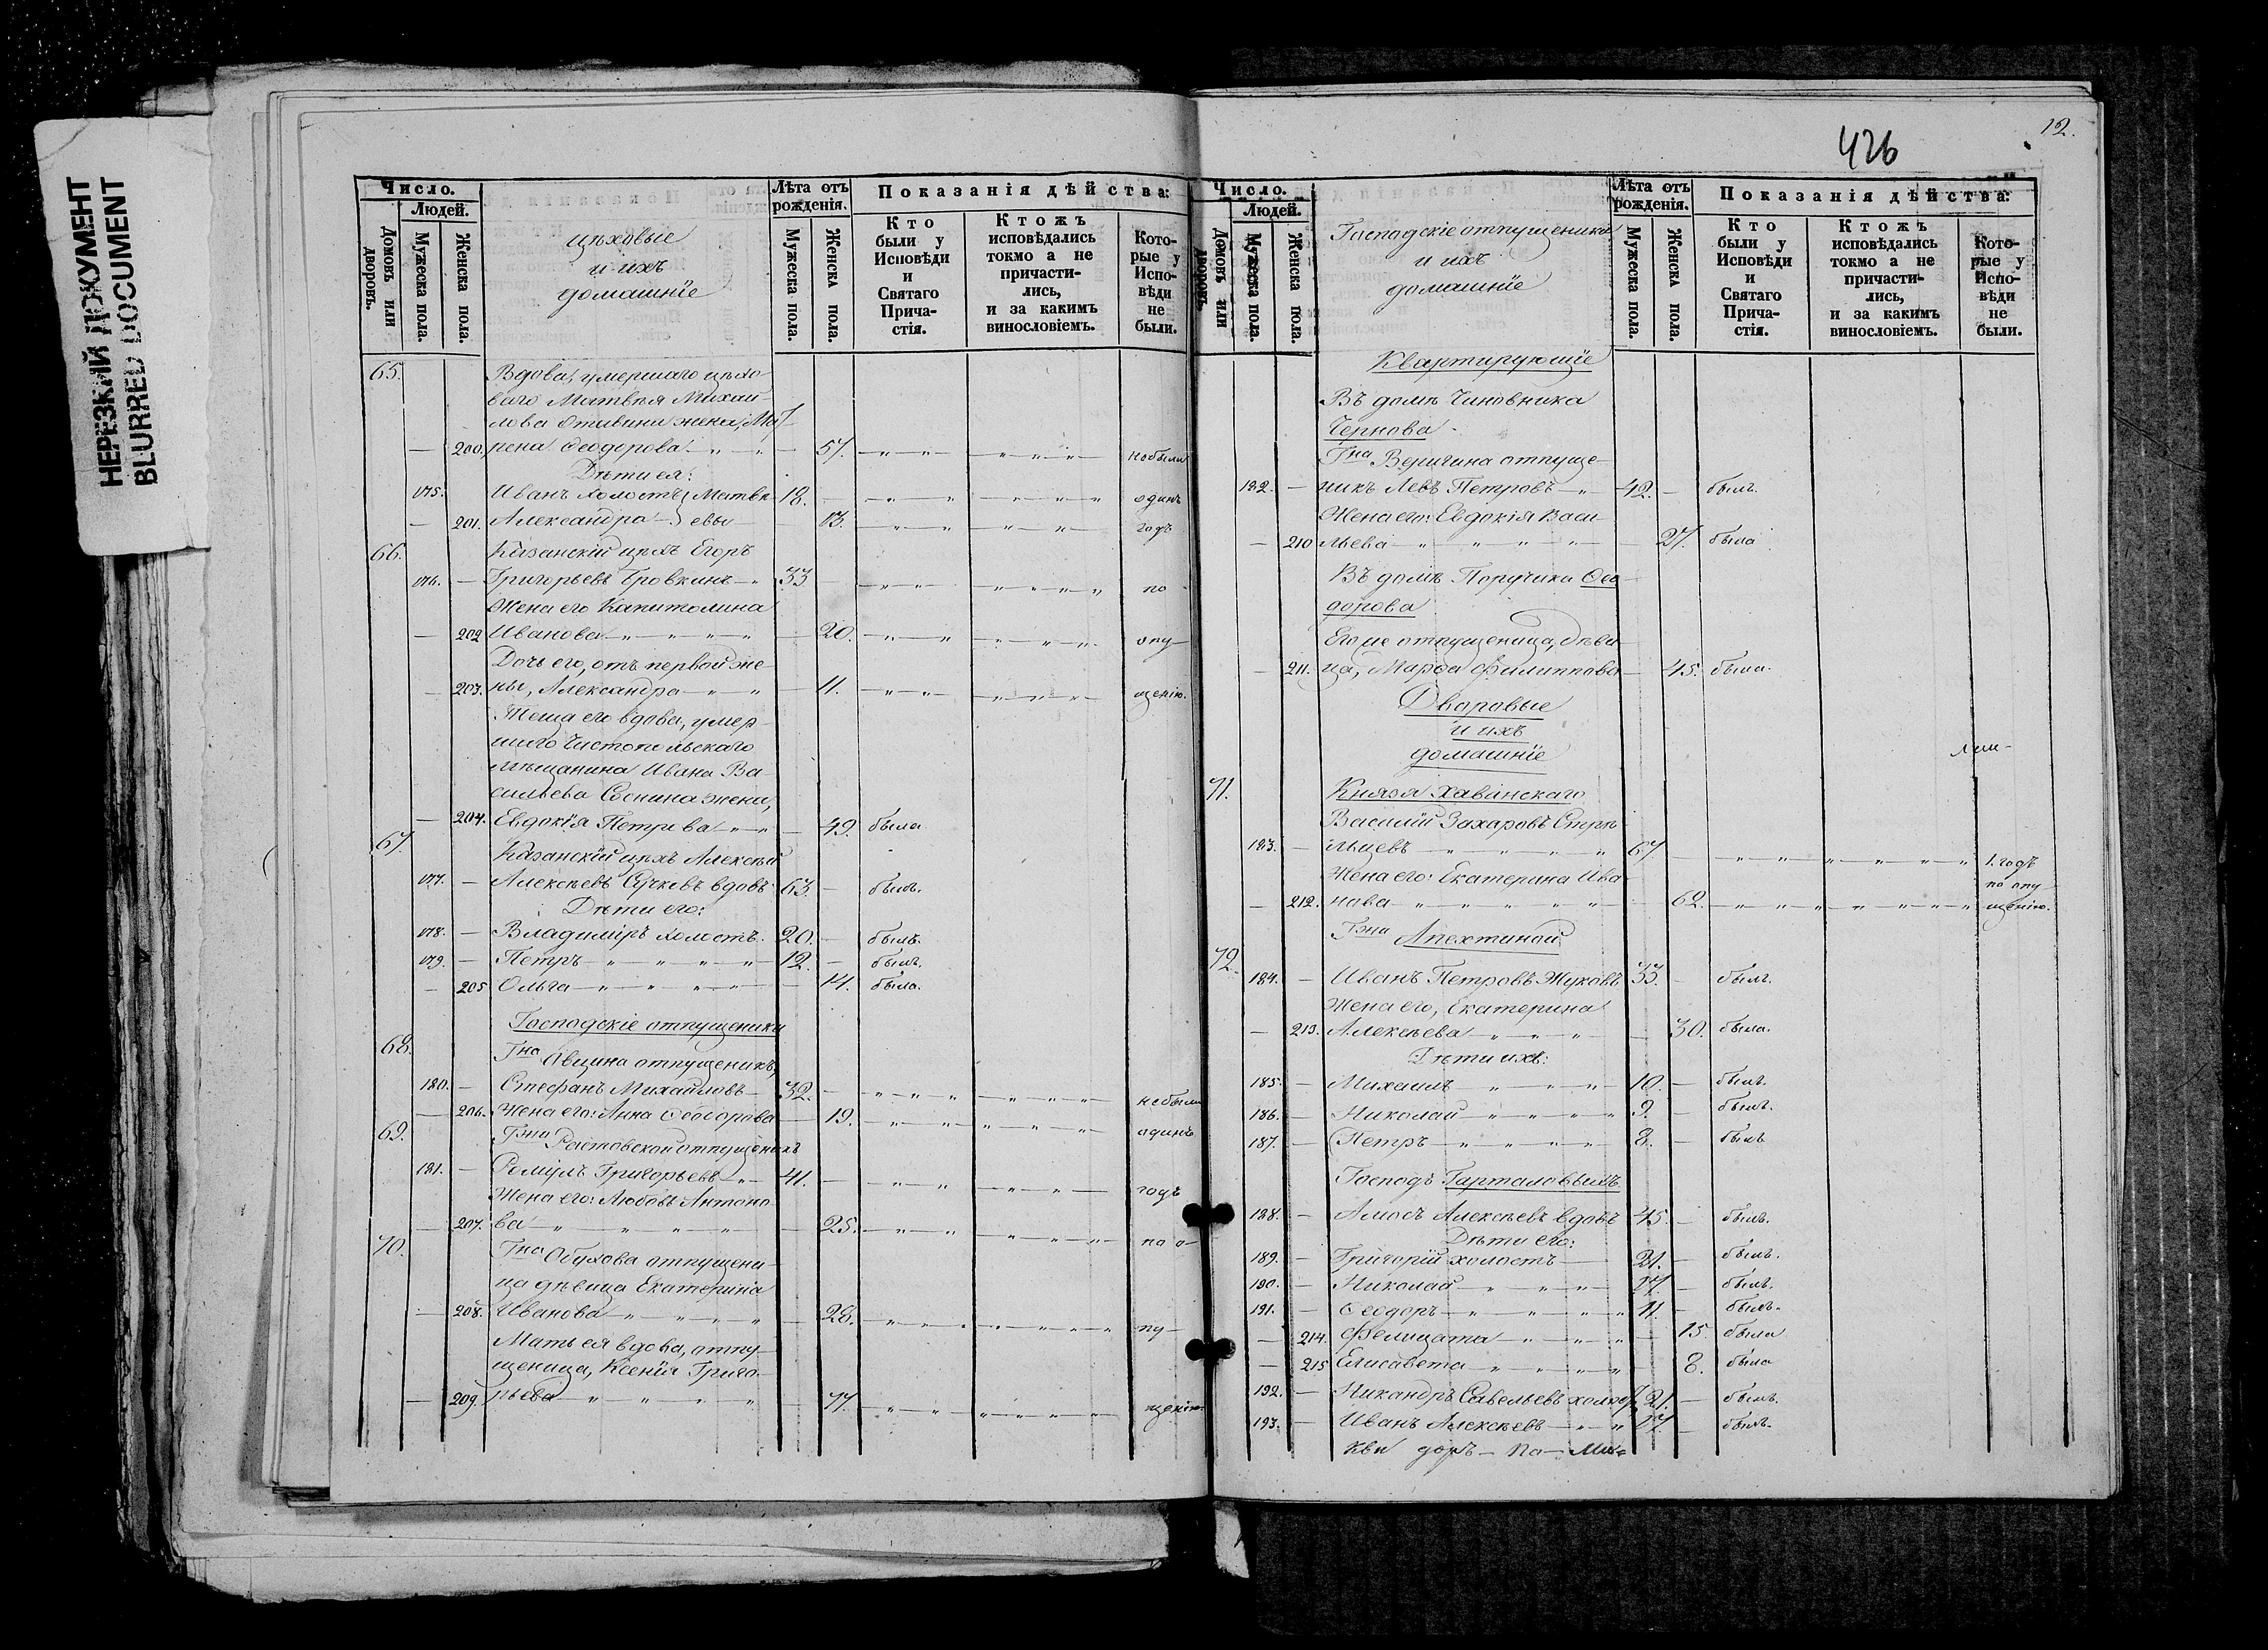 НЕРЕЗКИЙ ДОКУМЕНТ
BLURRED DOCUMENT
Число.
Людей.
Домовъ или дворовъ.
Мужеска пола.
Женска пола.
цѣховые
и ихъ
домашніе
Лѣта отъ рожденія.
Мужеска пола.
Женска пола.
Показанія дѣйства:
Кто были у Исповѣди и Святаго Прича-стія.
Ктожъ исповѣдались токмо а не причасти-лись, и за какимъ винословіемъ.
Кото-рые у Испо-вѣди не были.
65. Вдова, умершаго цѣхо-
ваго Матвѣя Михаи-
лова жена, Ма
200. рена Ѳеодорова 57. небыли
Дѣти ея:
175. Иванъ холостъ Матвѣ- 18. одинъ
201. Александра евы 13. годъ
66. Казанскій цѣхъ Егоръ
176. Григорьевъ Бровкинъ 33 по
Жена его Капитолина
202 Иванова 20. опу-
Дочь его, отъ первой же-
203. ны, Александра 11. щенію.
Теща его вдова, умер-
шаго Чистопольскаго
мѣщанина Ивана Ва-
сильева жена,
204. Евдокія Петрова 49. была
67. Казанскій цѣхъ Алексѣй
177. Алексѣевъ Сучковъ вдовъ 63. былъ.
Дѣти его:
178. Владиміръ холостъ. 20. былъ.
179. Петръ 12. былъ.
205 Ольга 14. была.
Господскіе отпущеники
68. Гна Овцина отпущеникъ,
180. Стефанъ Михайловъ 32. небыли
206. Жена его: Анна Ѳеодорова 19. одинъ
69. Гжи Растовской отпущеникъ
181. Ромулъ Григорьевъ 41. годъ
Жена его: Любовь Антоно-
207. ва 25. по о-
70. Гна Обухова отпущени-
ца дѣвица Екатерина
208. Иванова 28. пу-
Мать ея вдова, отпу-
щеница, Ксенія Григо-
209. рьева 77. щенію.
426
12.
Число.
Людей.
Домовъ или дворовъ.
Мужеска пола.
Женска пола.
Господскіе отпущеники
и ихъ
домашніе
Лѣта отъ рожденія.
Мужеска пола.
Женска пола.
Показанія дѣйства:
Кто были у Исповѣди и Святаго Прича-стія.
Ктожъ исповѣдались токмо а не причасти-лись, и за какимъ винословіемъ.
Кото-рые у Испо-вѣди не были.
Квартирующіе
Въ домѣ Чиновника
Чернова
Гна Веригина отпуще-
182. никъ Левъ Петровъ 42. былъ.
Жена его: Евдокія Васи-
210 льева 27. была
Въ домѣ Поручика Ѳео-
дорова
Его же отпущеница, дѣви-
211. ца, Марѳа Филиппова 45. была.
Дворовые
и ихъ
домашніе
71. Князя Хованскаго
Василій Захаровъ Стрѣ-
183. льцевъ 67. 1. годъ
Жена его: Екатерина Ива- по опу-
212. нова 62. щенію.
Гжи Апехтиной
72.
184. Иванъ Петровъ Жуковъ 33. былъ.
Жена его, Екатерина
213. Алексѣева 30. была.
Дѣти ихъ:
185. Михаилъ 10. былъ.
186. Николай 9. былъ.
187. Петръ 8. былъ
Господъ Гарталовыхъ
188. Амосъ Алексѣевъ вдовъ 45. былъ.
Дѣти его:
189. Григорій холостъ 21. былъ.
190. Николай 17. былъ.
191. Ѳеодоръ 11. былъ.
214. Фелицата 15. была
215 Елисавета 8. была
192. Никандръ Савельевъ холост 21. былъ.
193. Иванъ Алексѣевъ 27. былъ.